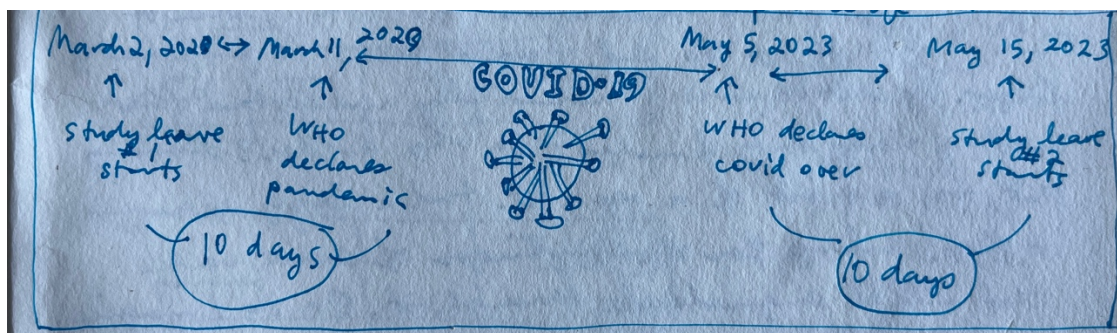 March 2, 2020 ↔ March 11, 2020
May 5, 2023
May 15, 2023
COVID-19
study leave
#1
starts
WHO
declares
pandemic
WHO declares
covid over
study leave
#2
starts
10 days
10 days